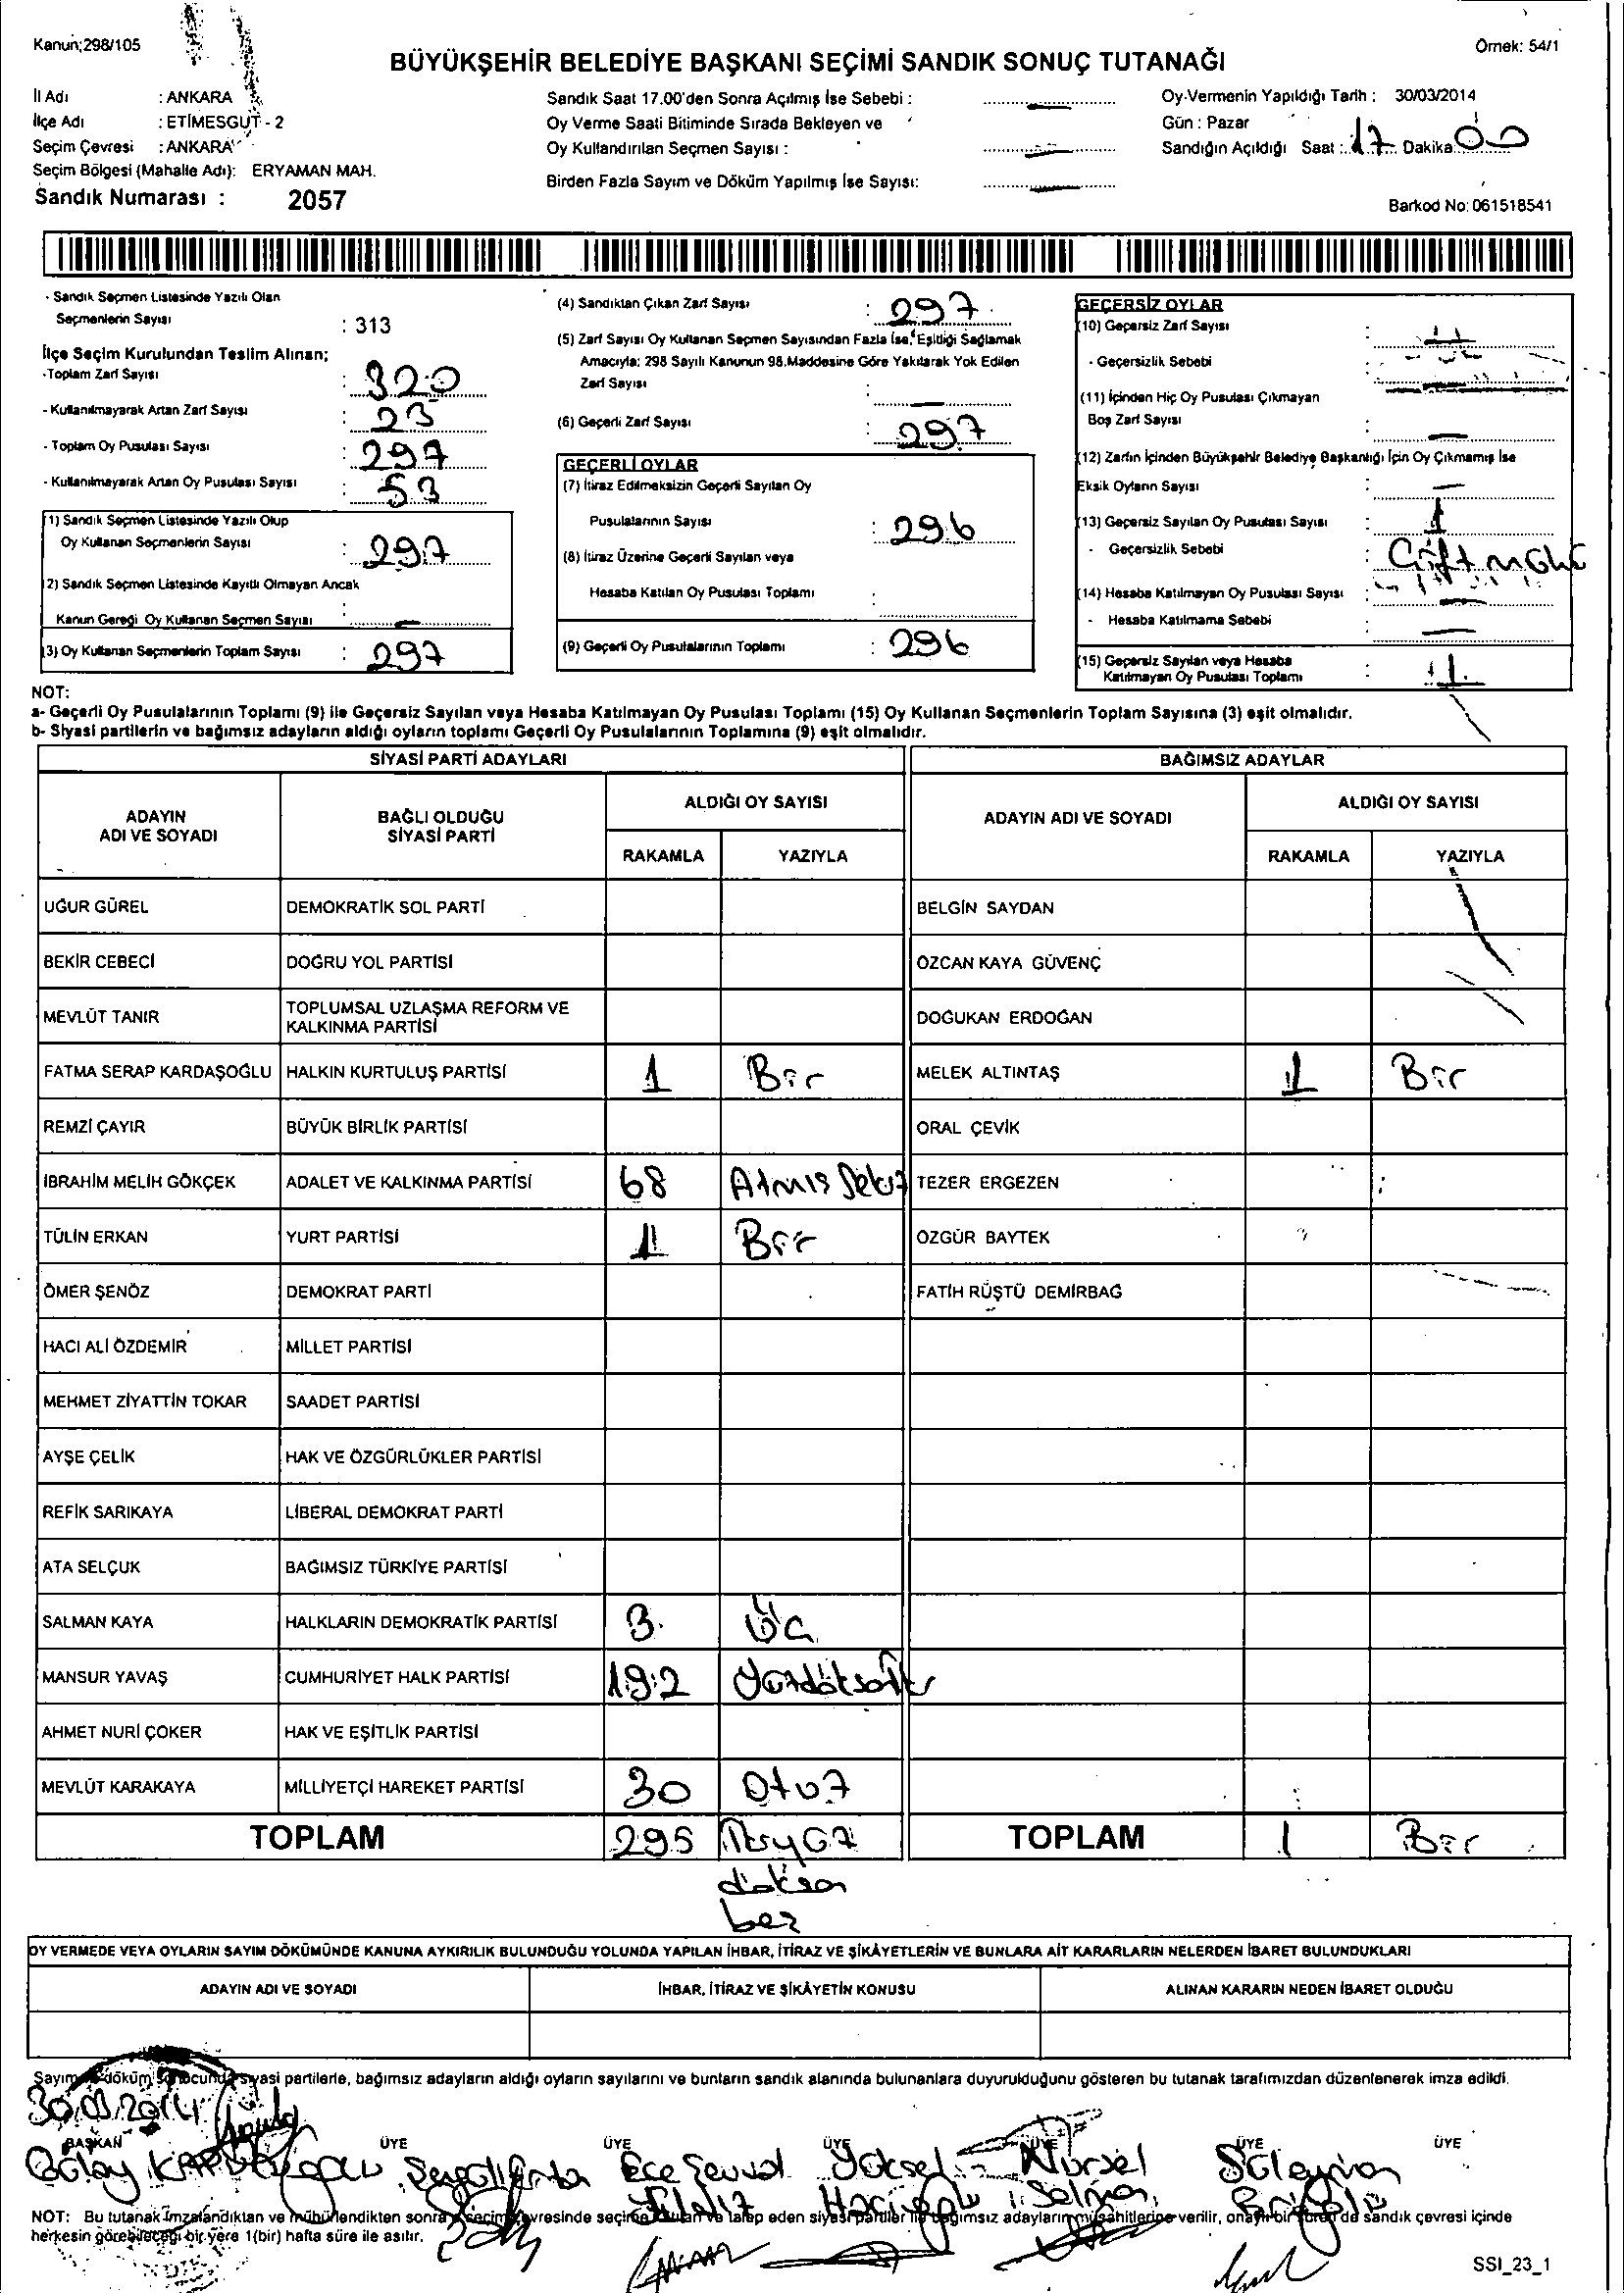 Kanun;298/105
Örnek: 54/1
BÜYÜKŞEHİR BELEDİYE BAŞKANI SEÇİMİ SANDIK SONUÇ TUTANAĞI
İl Adı : ANKARA
İlçe Adı : ETİMESGUT - 2
Seçim Çevresi : ANKARA
Seçim Bölgesi (Mahalle Adı): ERYAMAN MAH.
Sandık Numarası : 2057
Sandık Saat 17.00'den Sonra Açılmış İse Sebebi :
Oy Verme Saati Bitiminde Sırada Bekleyen ve
Oy Kullandırılan Seçmen Sayısı :
Birden Fazla Sayım ve Döküm Yapılmış İse Sayısı:
Oy Vermenin Yapıldığı Tarih : 30/03/2014
Gün : Pazar
Sandığın Açıldığı Saat : 17 Dakika 00
Barkod No: 061518541
- Sandık Seçmen Listesinde Yazılı Olan
Seçmenlerin Sayısı : 313
İlçe Seçim Kurulundan Teslim Alınan;
-Toplam Zarf Sayısı : 320
- Kullanılmayarak Artan Zarf Sayısı : 23
- Toplam Oy Pusulası Sayısı : 297
- Kullanılmayarak Artan Oy Pusulası Sayısı : 53
(1) Sandık Seçmen Listesinde Yazılı Olup
Oy Kullanan Seçmenlerin Sayısı : 297
(2) Sandık Seçmen Listesinde Kayıtlı Olmayan Ancak
Kanun Gereği Oy Kullanan Seçmen Sayısı : -
(3) Oy Kullanan Seçmenlerin Toplam Sayısı : 297
(4) Sandıktan Çıkan Zarf Sayısı : 297
(5) Zarf Sayısı Oy Kullanan Seçmen Sayısından Fazla İse, Eşitliği Sağlamak
Amacıyla; 298 Sayılı Kanunun 98.Maddesine Göre Yakılarak Yok Edilen
Zarf Sayısı : -
(6) Geçerli Zarf Sayısı : 297
GEÇERLİ OYLAR
(7) İtiraz Edilmeksizin Geçerli Sayılan Oy
Pusulalarının Sayısı : 296
(8) İtiraz Üzerine Geçerli Sayılan veya
Hesaba Katılan Oy Pusulası Toplamı :
(9) Geçerli Oy Pusulalarının Toplamı : 296
GEÇERSİZ OYLAR
(10) Geçersiz Zarf Sayısı :
- Geçersizlik Sebebi :
(11) İçinden Hiç Oy Pusulası Çıkmayan
Boş Zarf Sayısı : -
(12) Zarfın İçinden Büyükşehir Belediye Başkanlığı İçin Oy Çıkmamış İse
Eksik Oyların Sayısı : -
(13) Geçersiz Sayılan Oy Pusulası Sayısı : 1
- Geçersizlik Sebebi : Çift mühü
(14) Hesaba Katılmayan Oy Pusulası Sayısı : -
- Hesaba Katılmama Sebebi : -
(15) Geçersiz Sayılan veya Hesaba
Katılmayan Oy Pusulası Toplamı : 1
NOT:
a- Geçerli Oy Pusulalarının Toplamı (9) ile Geçersiz Sayılan veya Hesaba Katılmayan Oy Pusulası Toplamı (15) Oy Kullanan Seçmenlerin Toplam Sayısına (3) eşit olmalıdır.
b- Siyasi partilerin ve bağımsız adayların aldığı oyların toplamı Geçerli Oy Pusulalarının Toplamına (9) eşit olmalıdır.
SİYASİ PARTİ ADAYLARI BAĞIMSIZ ADAYLAR
ADAYIN ADI VE SOYADI BAĞLI OLDUĞU SİYASİ PARTİ ALDIĞI OY SAYISI ADAYIN ADI VE SOYADI ALDIĞI OY SAYISI
RAKAMLA YAZIYLA RAKAMLA YAZIYLA
UĞUR GÜREL DEMOKRATİK SOL PARTİ BELGİN SAYDAN
BEKİR CEBECİ DOĞRU YOL PARTİSİ ÖZCAN KAYA GÜVENÇ
MEVLÜT TANIR TOPLUMSAL UZLAŞMA REFORM VE KALKINMA PARTİSİ DOĞUKAN ERDOĞAN
FATMA SERAP KARDAŞOĞLU HALKIN KURTULUŞ PARTİSİ 1 Bir MELEK ALTINTAŞ 1 Bir
REMZİ ÇAYIR BÜYÜK BİRLİK PARTİSİ ORAL ÇEVİK
İBRAHİM MELİH GÖKÇEK ADALET VE KALKINMA PARTİSİ 68 Atmış Sekiz TEZER ERGEZEN
TÜLİN ERKAN YURT PARTİSİ 1 Bir ÖZGÜR BAYTEK
ÖMER ŞENÖZ DEMOKRAT PARTİ FATİH RÜŞTÜ DEMİRBAĞ
HACI ALİ ÖZDEMİR MİLLET PARTİSİ
MEHMET ZİYATTİN TOKAR SAADET PARTİSİ
AYŞE ÇELİK HAK VE ÖZGÜRLÜKLER PARTİSİ
REFİK SARIKAYA LİBERAL DEMOKRAT PARTİ
ATA SELÇUK BAĞIMSIZ TÜRKİYE PARTİSİ
SALMAN KAYA HALKLARIN DEMOKRATİK PARTİSİ 3 Üç
MANSUR YAVAŞ CUMHURİYET HALK PARTİSİ 192 Yüzdoksaniki
AHMET NURİ ÇOKER HAK VE EŞİTLİK PARTİSİ
MEVLÜT KARAKAYA MİLLİYETÇİ HAREKET PARTİSİ 30 Otuz
TOPLAM 295 İkiyüz TOPLAM 1 Bir
doksan
beş
OY VERMEDE VEYA OYLARIN SAYIM DÖKÜMÜNDE KANUNA AYKIRILIK BULUNDUĞU YOLUNDA YAPILAN İHBAR, İTİRAZ VE ŞİKÂYETLERİN VE BUNLARA AİT KARARLARIN NELERDEN İBARET BULUNDUKLARI
ADAYIN ADI VE SOYADI İHBAR, İTİRAZ VE ŞİKÂYETİN KONUSU ALINAN KARARIN NEDEN İBARET OLDUĞU
Sayım döküm sonucunda siyasi partilerle, bağımsız adayların aldığı oyların sayılarını ve bunların sandık alanında bulunanlara duyurulduğunu gösteren bu tutanak tarafımızdan düzenlenerek imza edildi.
30.03.2014
BAŞKAN ÜYE ÜYE ÜYE ÜYE ÜYE ÜYE
Gülay Ece Şevval Yüksel Nursel Süleyman
Yıldız Hacıoğlu Selman
NOT: Bu tutanak imzalandıktan ve mühürlendikten sonra seçim çevresinde seçime katılan ve talep eden siyasi partiler ile bağımsız adayların müşahitlerine verilir, onaylı bir sureti de sandık çevresi içinde
herkesin görebileceği bir yere 1(bir) hafta süre ile asılır.
SSI_23_1